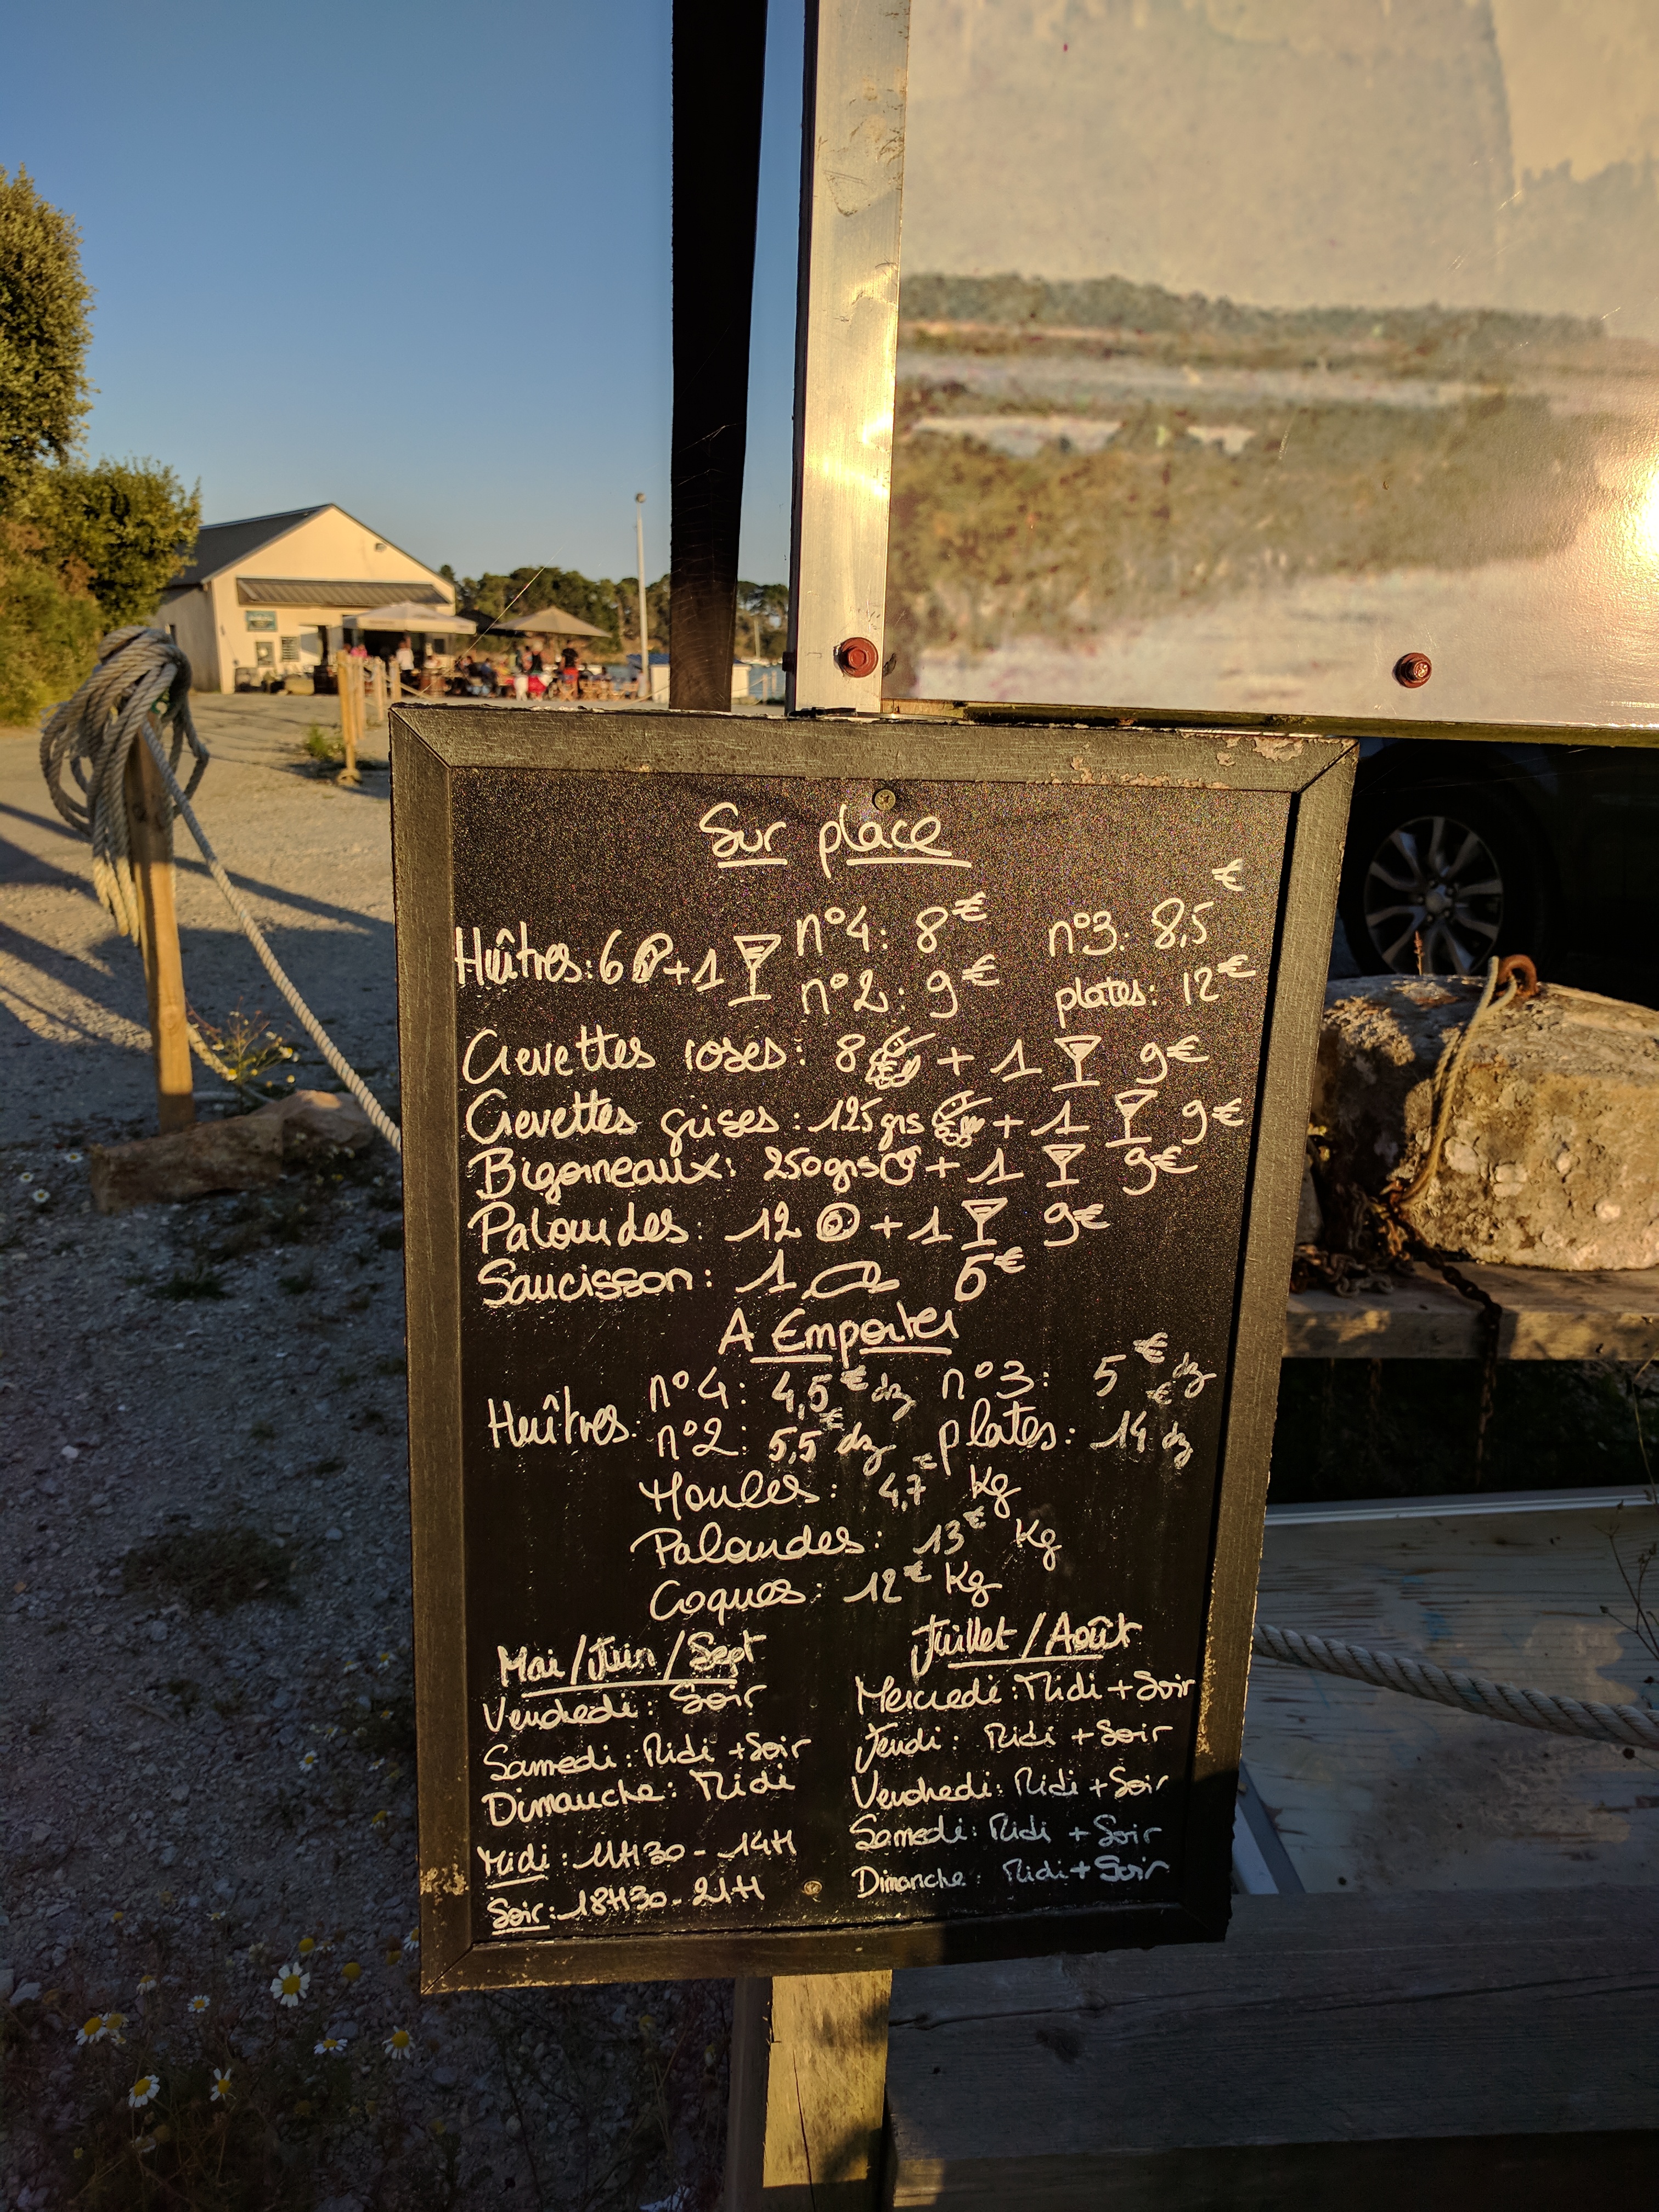 Sur place
Huîtres: 6 + 1 n°4: 8€ n°3: 8,5€
n°2: 9€ plates: 12€
Crevettes roses: 8 + 1 9€
Crevettes grises: 125grs + 1 9€
Bigorneaux: 250grs + 1 9€
Palourdes: 12 + 1 9€
Saucisson: 1 5€
A Emporter
Huîtres: n°4: 4,5€ dz n°3: 5€ dz
n°2: 5,5€ dz plates: 14€ dz
Moules: 4,7€ Kg
Palourdes: 13€ Kg
Coques: 12€ Kg
Mai/Juin/Sept
Vendredi: Soir
Samedi: Midi + Soir
Dimanche: Midi
Midi: 11H30 - 14H
Soir: 18H30 - 21H
Juillet/Août
Mercredi: Midi + Soir
Jeudi: Midi + Soir
Vendredi: Midi + Soir
Samedi: Midi + Soir
Dimanche: Midi + Soir